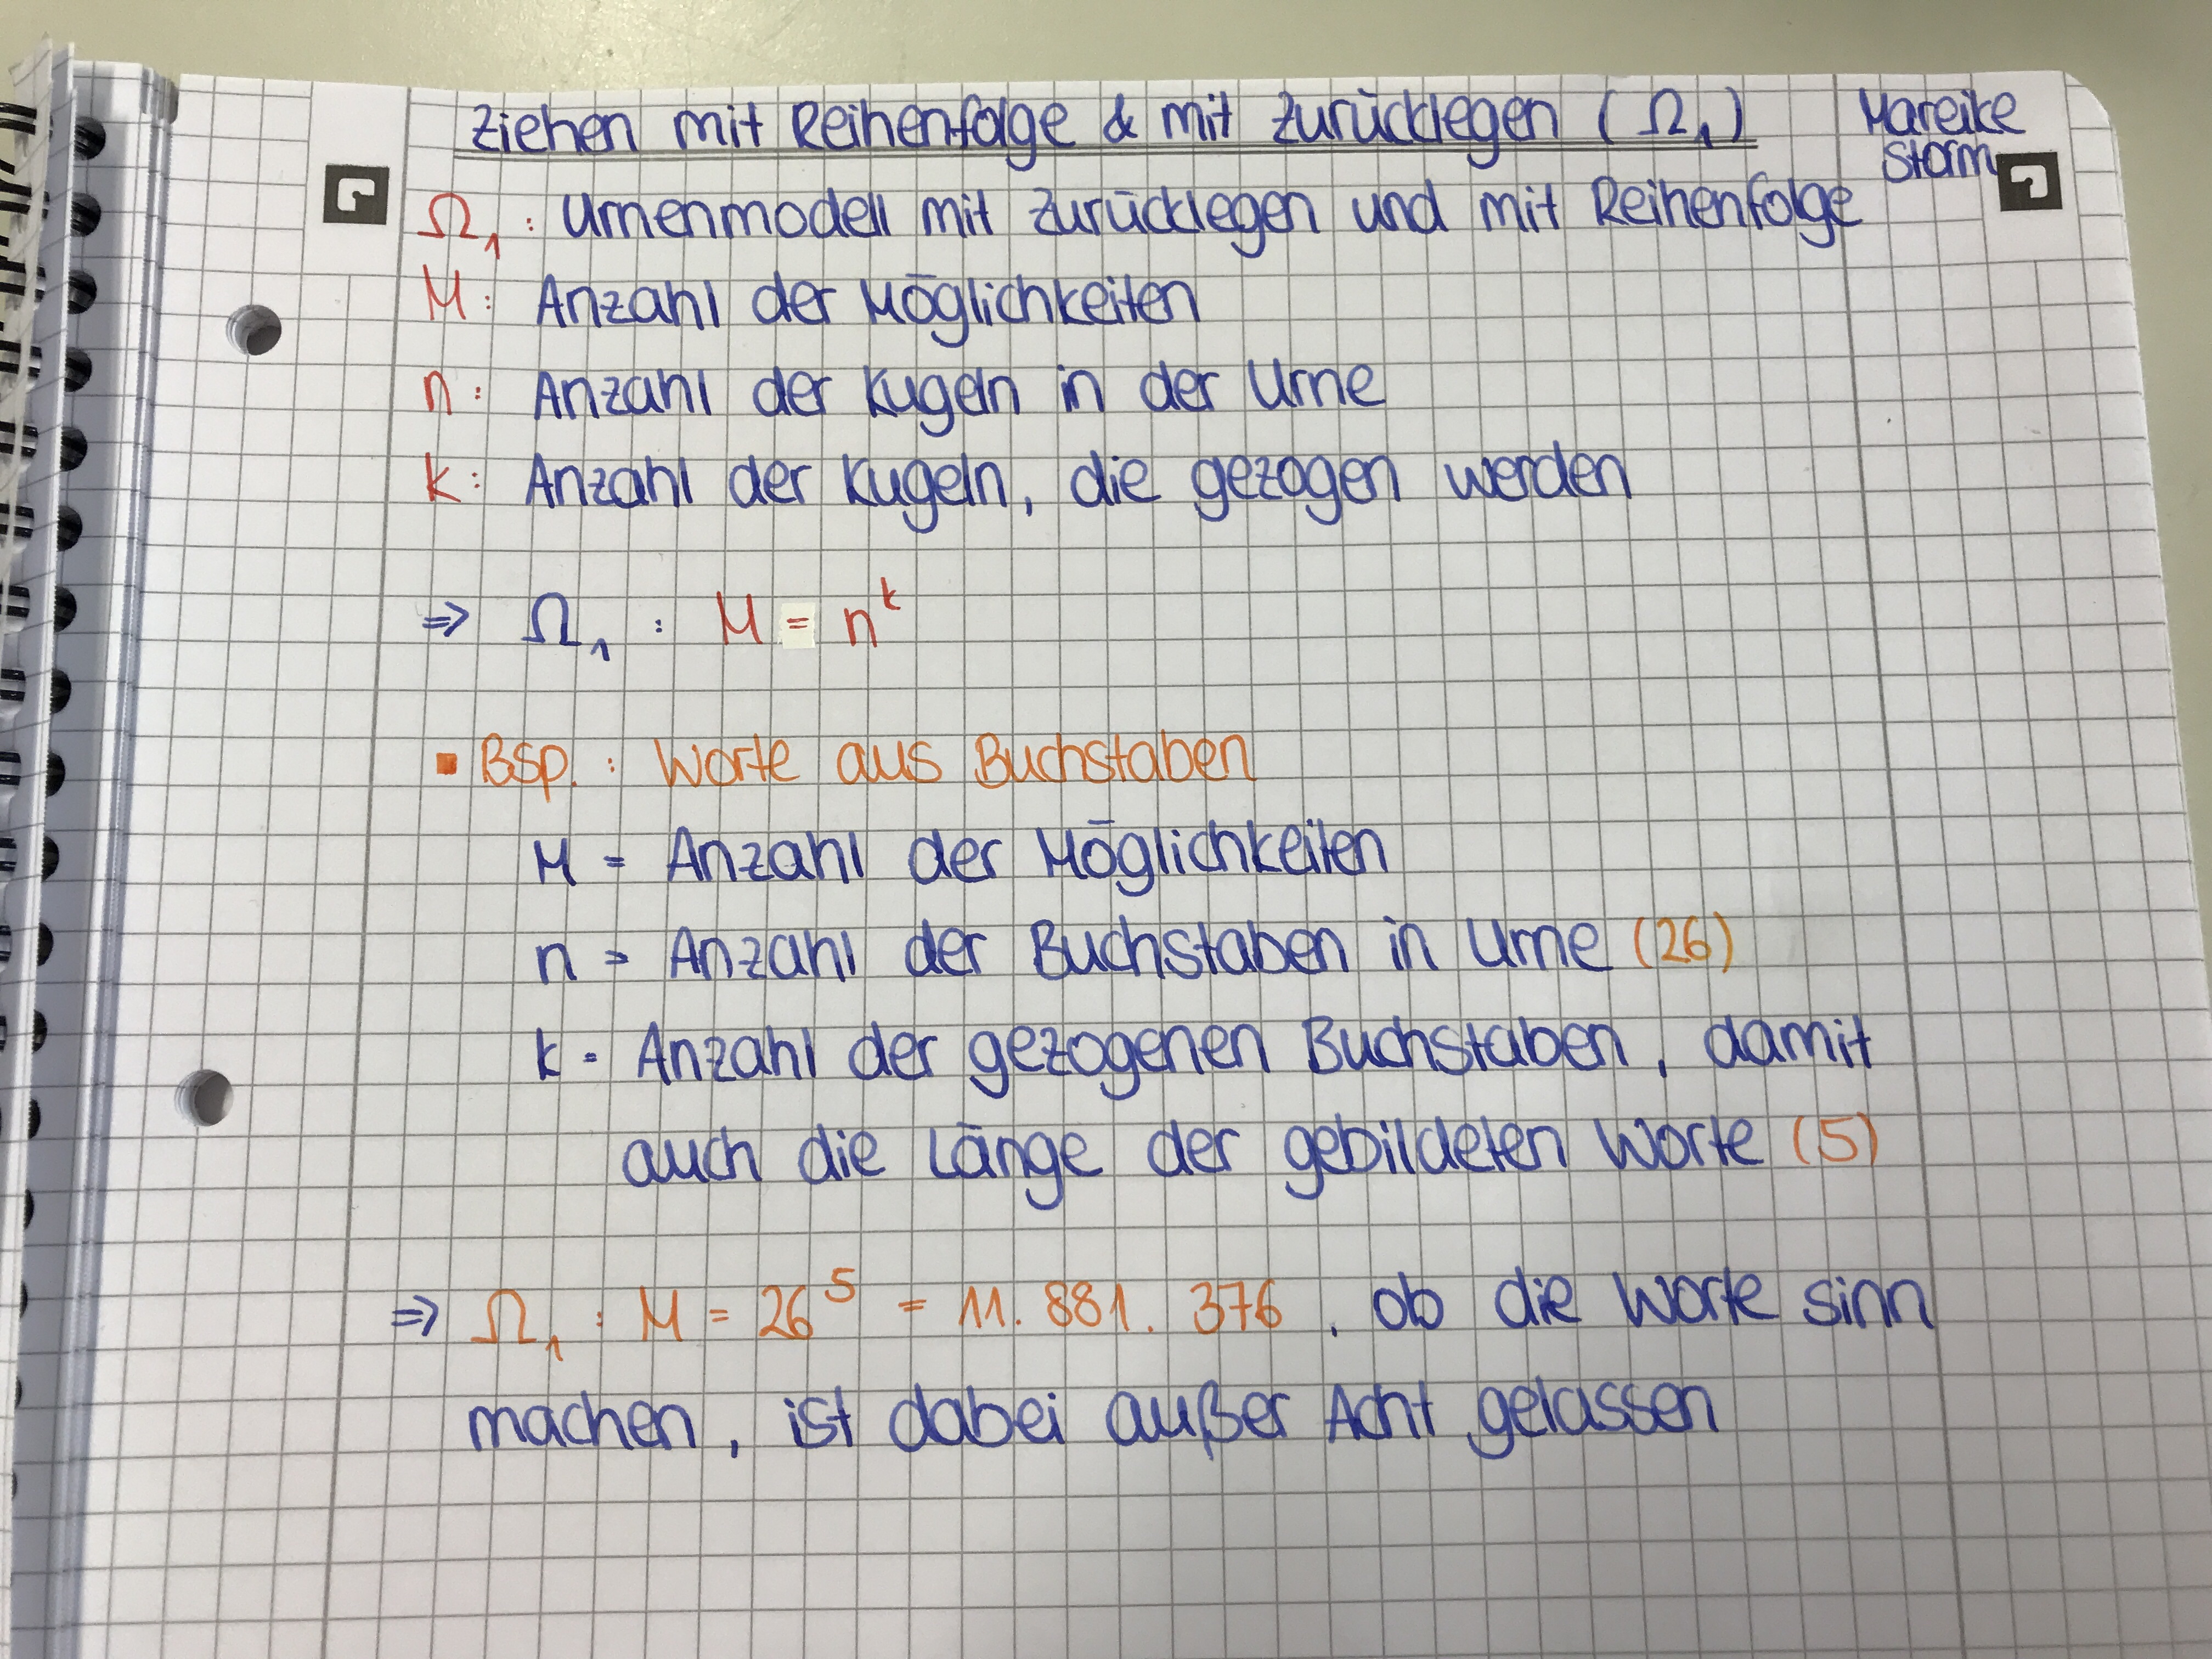 Ziehen mit Reihenfolge & mit Zurücklegen (Ω₁)
Mareike
Storm
Ω₁ : Urnenmodell mit Zurücklegen und mit Reihenfolge
M : Anzahl der Möglichkeiten
n : Anzahl der Kugeln in der Urne
k : Anzahl der Kugeln, die gezogen werden
⇒ Ω₁ : M = nᵏ
▪ Bsp. : Worte aus Buchstaben
M = Anzahl der Möglichkeiten
n = Anzahl der Buchstaben in Urne (26)
k = Anzahl der gezogenen Buchstaben, damit
auch die Länge der gebildeten Worte (5)
⇒ Ω₁ : M = 26⁵ = 11.881.376, ob die Worte sinn
machen, ist dabei außer Acht gelassen